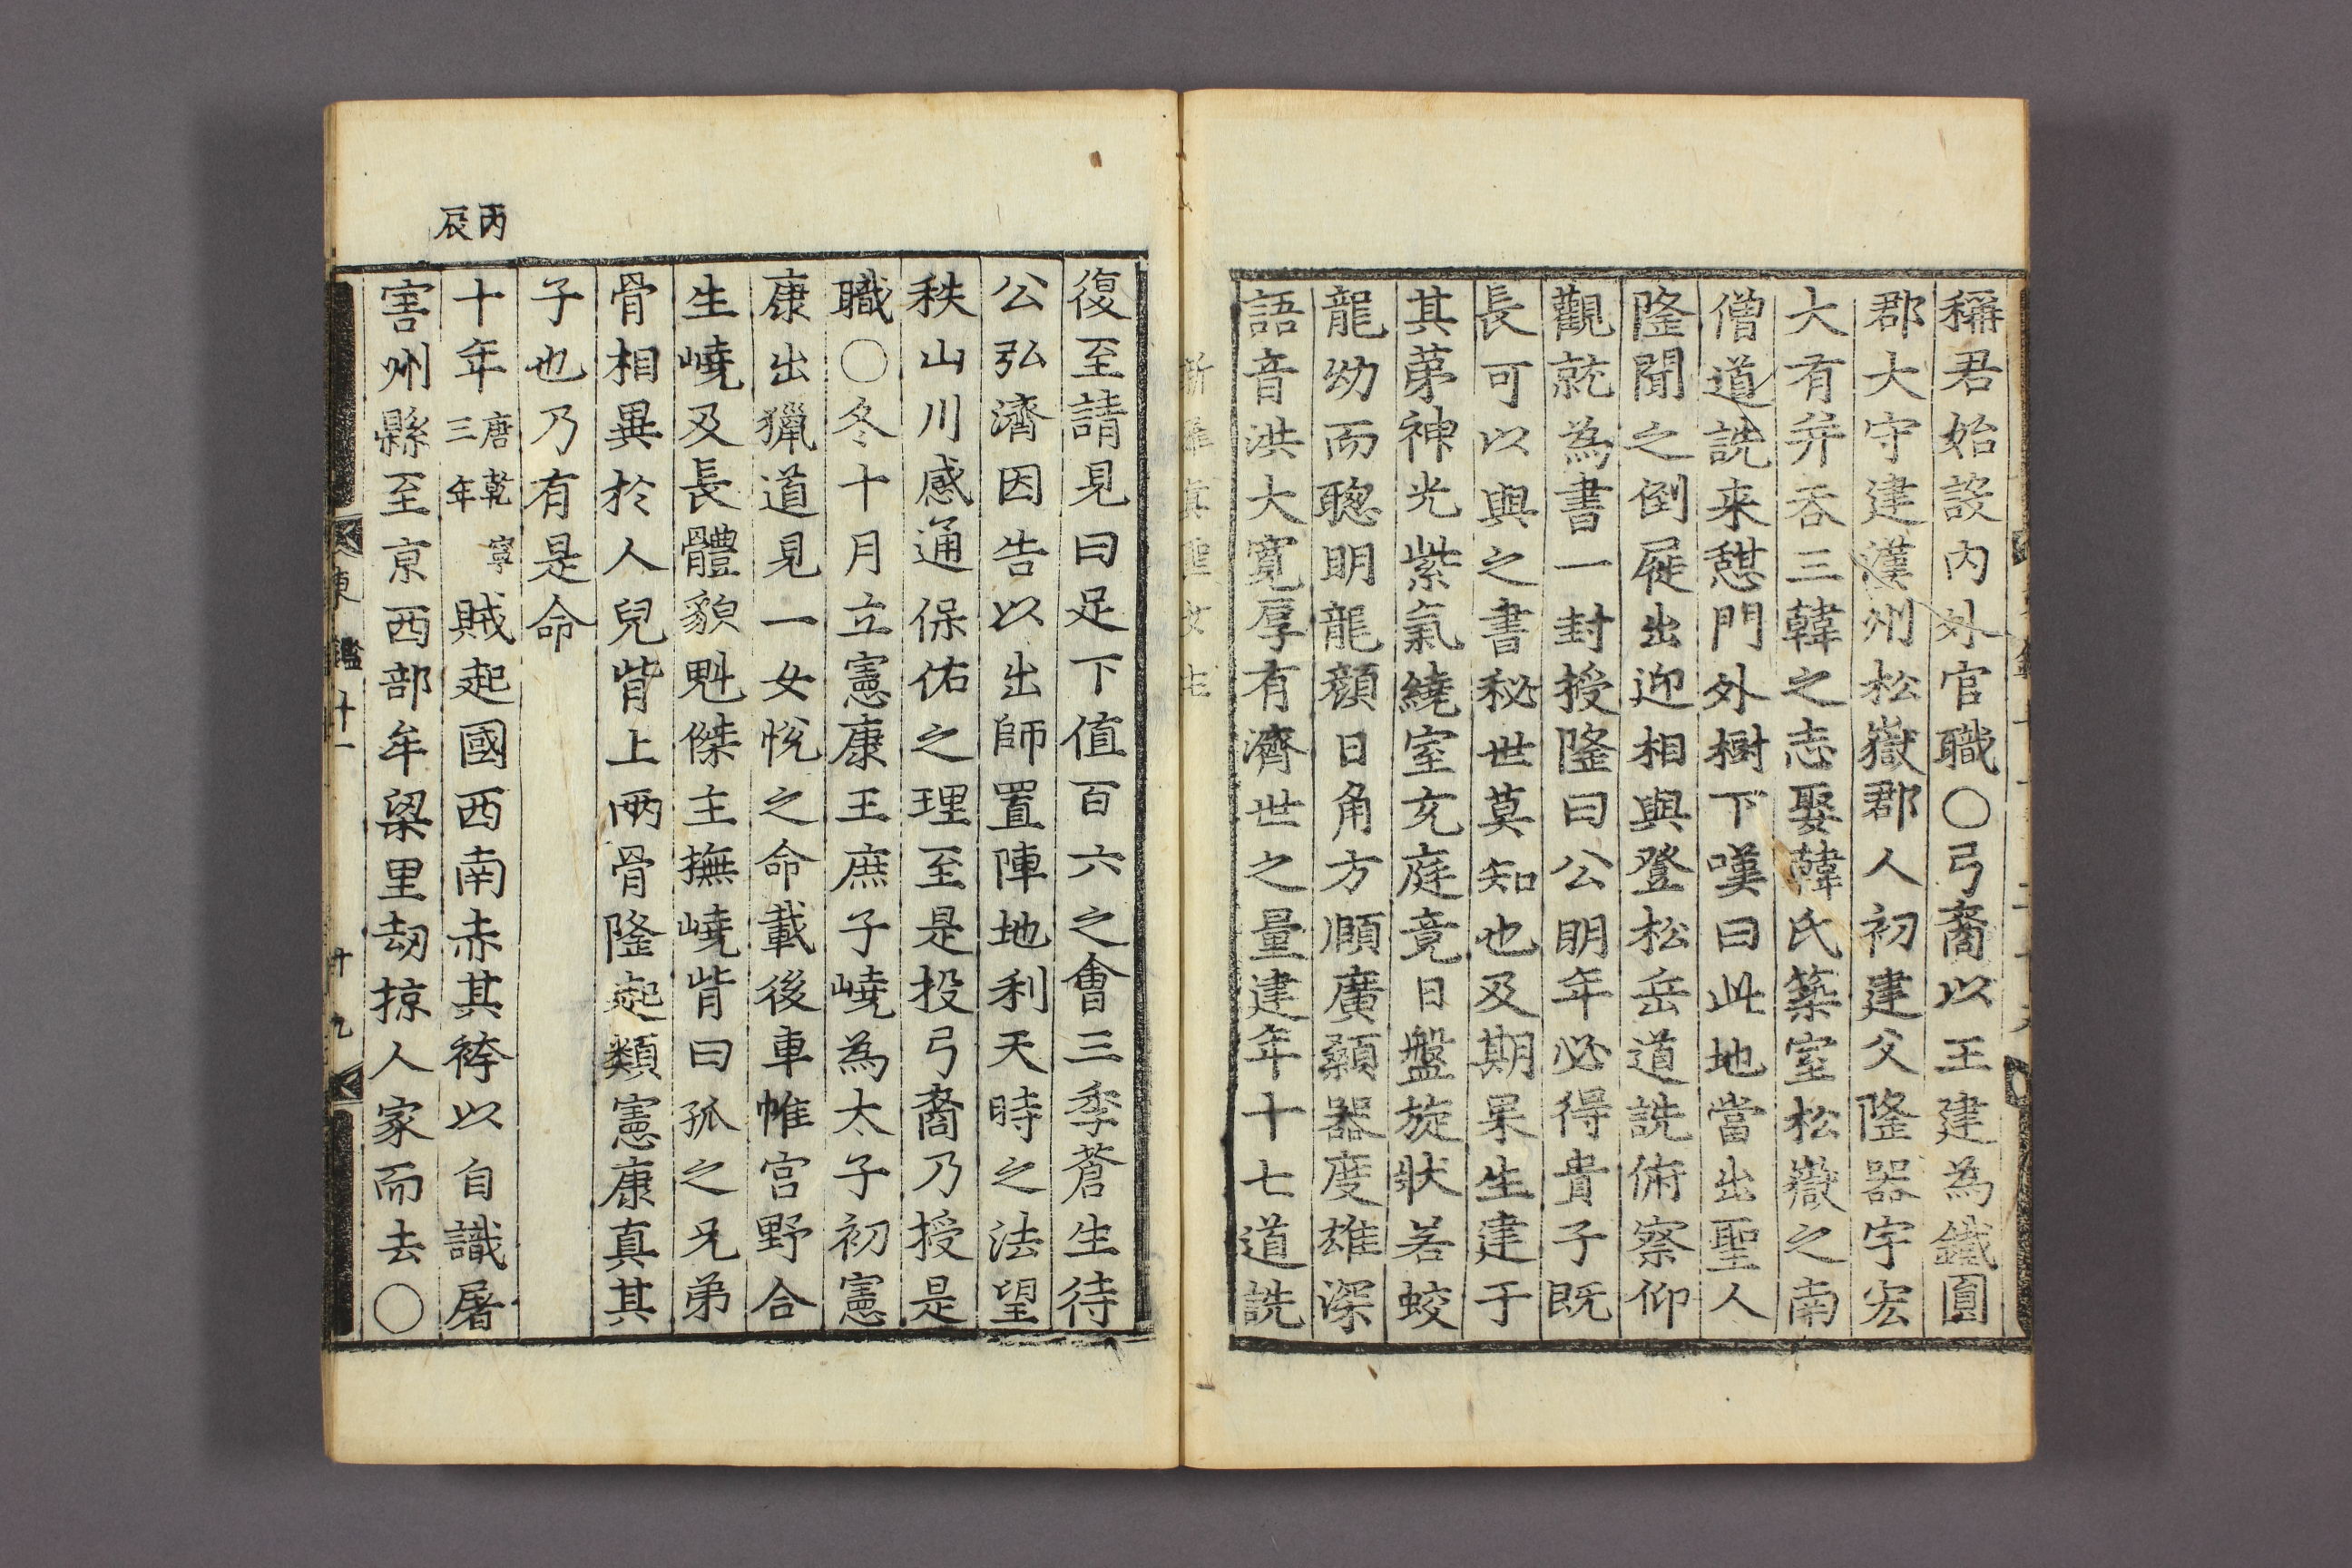 稱君始設內外官職○弓裔以王建為鐵圓
郡大守建漢州松嶽郡人初建父隆器宇宏
大有并吞三韓之志娶韓氏築室松嶽之南
僧道詵来憇門外樹下嘆曰此地當出聖人
隆聞之倒屣出迎相與登松岳道詵俯察仰
觀就為書一封授隆曰公明年必得貴子既
長可以與之書秘世莫知也及期果生建于
其苐神光紫氣繞室充庭竟日盤旋狀若蛟
龍幼而聰明龍顏日角方頤廣顙器度雄深
語音洪大寬厚有濟世之量建年十七道詵
新羅真聖女主
復至請見曰足下值百六之會三季蒼生待
公弘濟因告以出師置陣地利天時之法望
秩山川感通保佑之理至是投弓裔乃授是
職○冬十月立憲康王庶子嶢為太子初憲
康出獵道見一女悅之命載後車帷宮野合
生嶢及長體貌魁傑主撫嶢背曰孤之兄弟
骨相異於人兒背上兩骨隆起類憲康真其
子也乃有是命
丙辰
十年唐乾寧三年賊起國西南赤其袴以自識屠
害州縣至京西部牟梁里劫掠人家而去○
東鑑十一
十九